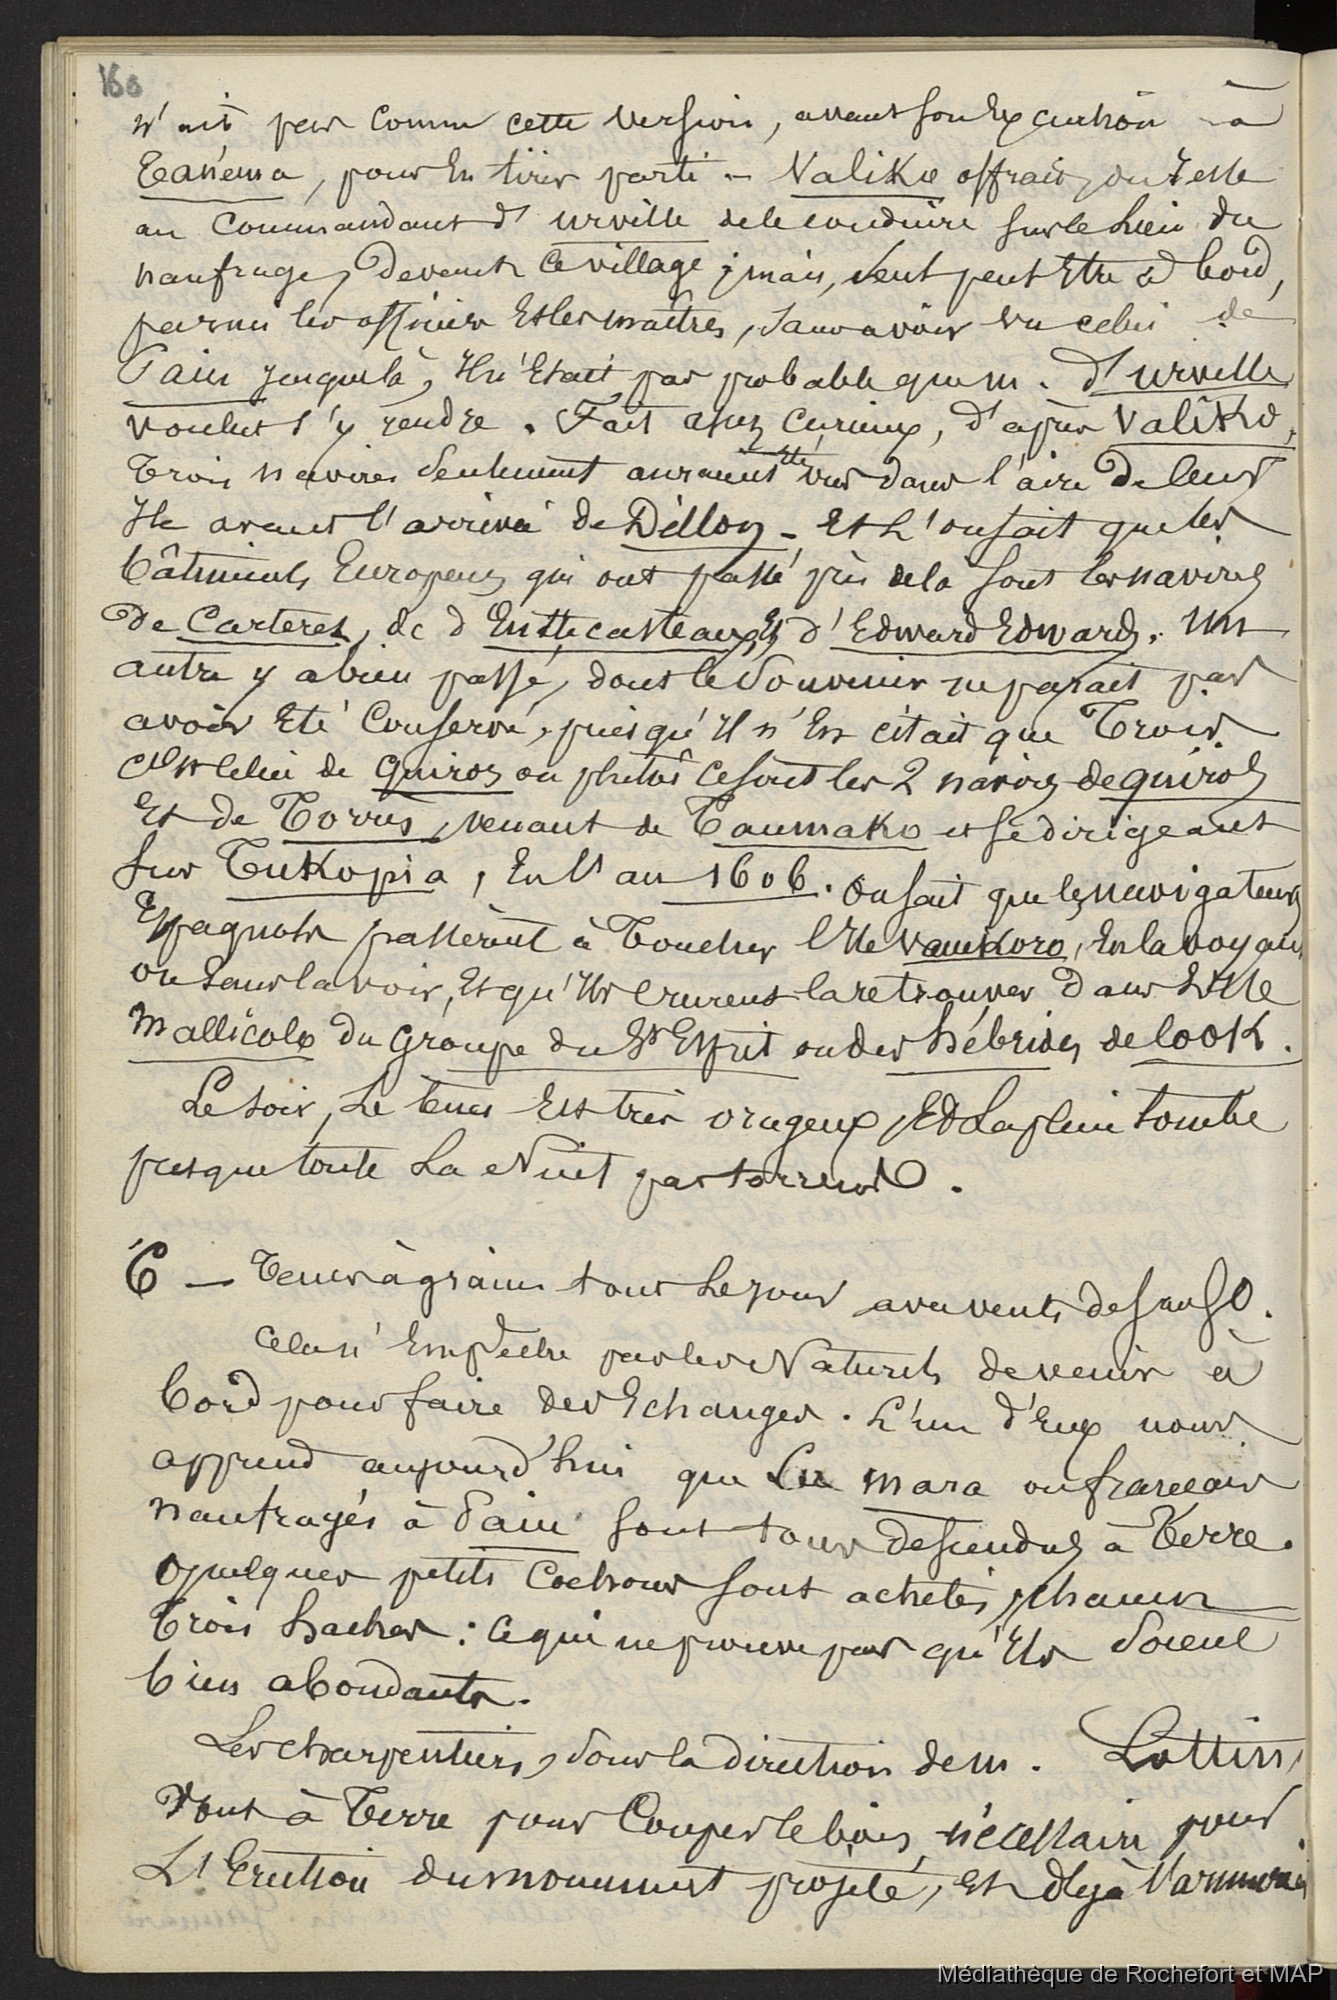 160
n'ait pas connu cette version, avant son Excursion à
Tanéma, pour En tirer parti – Valiko offrait, du reste
au Commandant d'urville de le conduire sur le Lieu du
naufrage, devant ce village ; mais, seul peut Etre à bord,
parmi les officiers Et les maîtres, sans avoir vu celui de
Païu jusque là, Il n'Etait pas probable que m. d'urville
voulut s'y rendre. Fait assez curieux, d'après Valiko,
Trois navires seulement auraient été vus dans l'aire de leur
Ile avant l'arrivée de Dillon – Et L'on sait que les
bâtiments Européens qui ont passé près de là sont les navires
de Carteret, de d'Entrecasteaux, Et d'Edward Edwards. Un
autre y a bien passé, dont le souvenir ne paraît pas
avoir Eté Conservé, puisqu'Il n'En citait que Trois
c'Est celui de quiros ou plutôt ce sont les 2 navires de quiros
Et de Torrès, venant de Taumako et se dirigeant
sur Tukopia, En l'an 1606. On sait que les navigateurs
Espagnols passèrent à Toucher l'Ile vanikoro, En la voyant
ou sans la voir, Et qu'Ils crurent la retrouver dans L'Ile
Mallicolo du Groupe du St Esprit ou des hébrides de Cook.
Le soir, Le tems Est très orageux, Et La pluie tombe
presque toute La Nuit par torrens.
6 – Tems à grains tout Le jour avec vents de S au SO.
Cela n'Empêche pas les Naturels de venir à
bord pour faire des Echanges. L'un d'Eux nous
apprend aujourd'hui que Les mara ou francais
naufragés à Païu sont tous descendus à Terre.
Quelques petits Cochons sont achetés, chacun
Trois haches : ce qui ne prouve pas qu'Ils soient
bien abondants.
Les charpentiers, sous la direction de m. Lottin,
vont à Terre pour Couper le bois nécessaire pour
L'Erection du monument projeté, Et déjà
Médiathèque de Rochefort et MAP